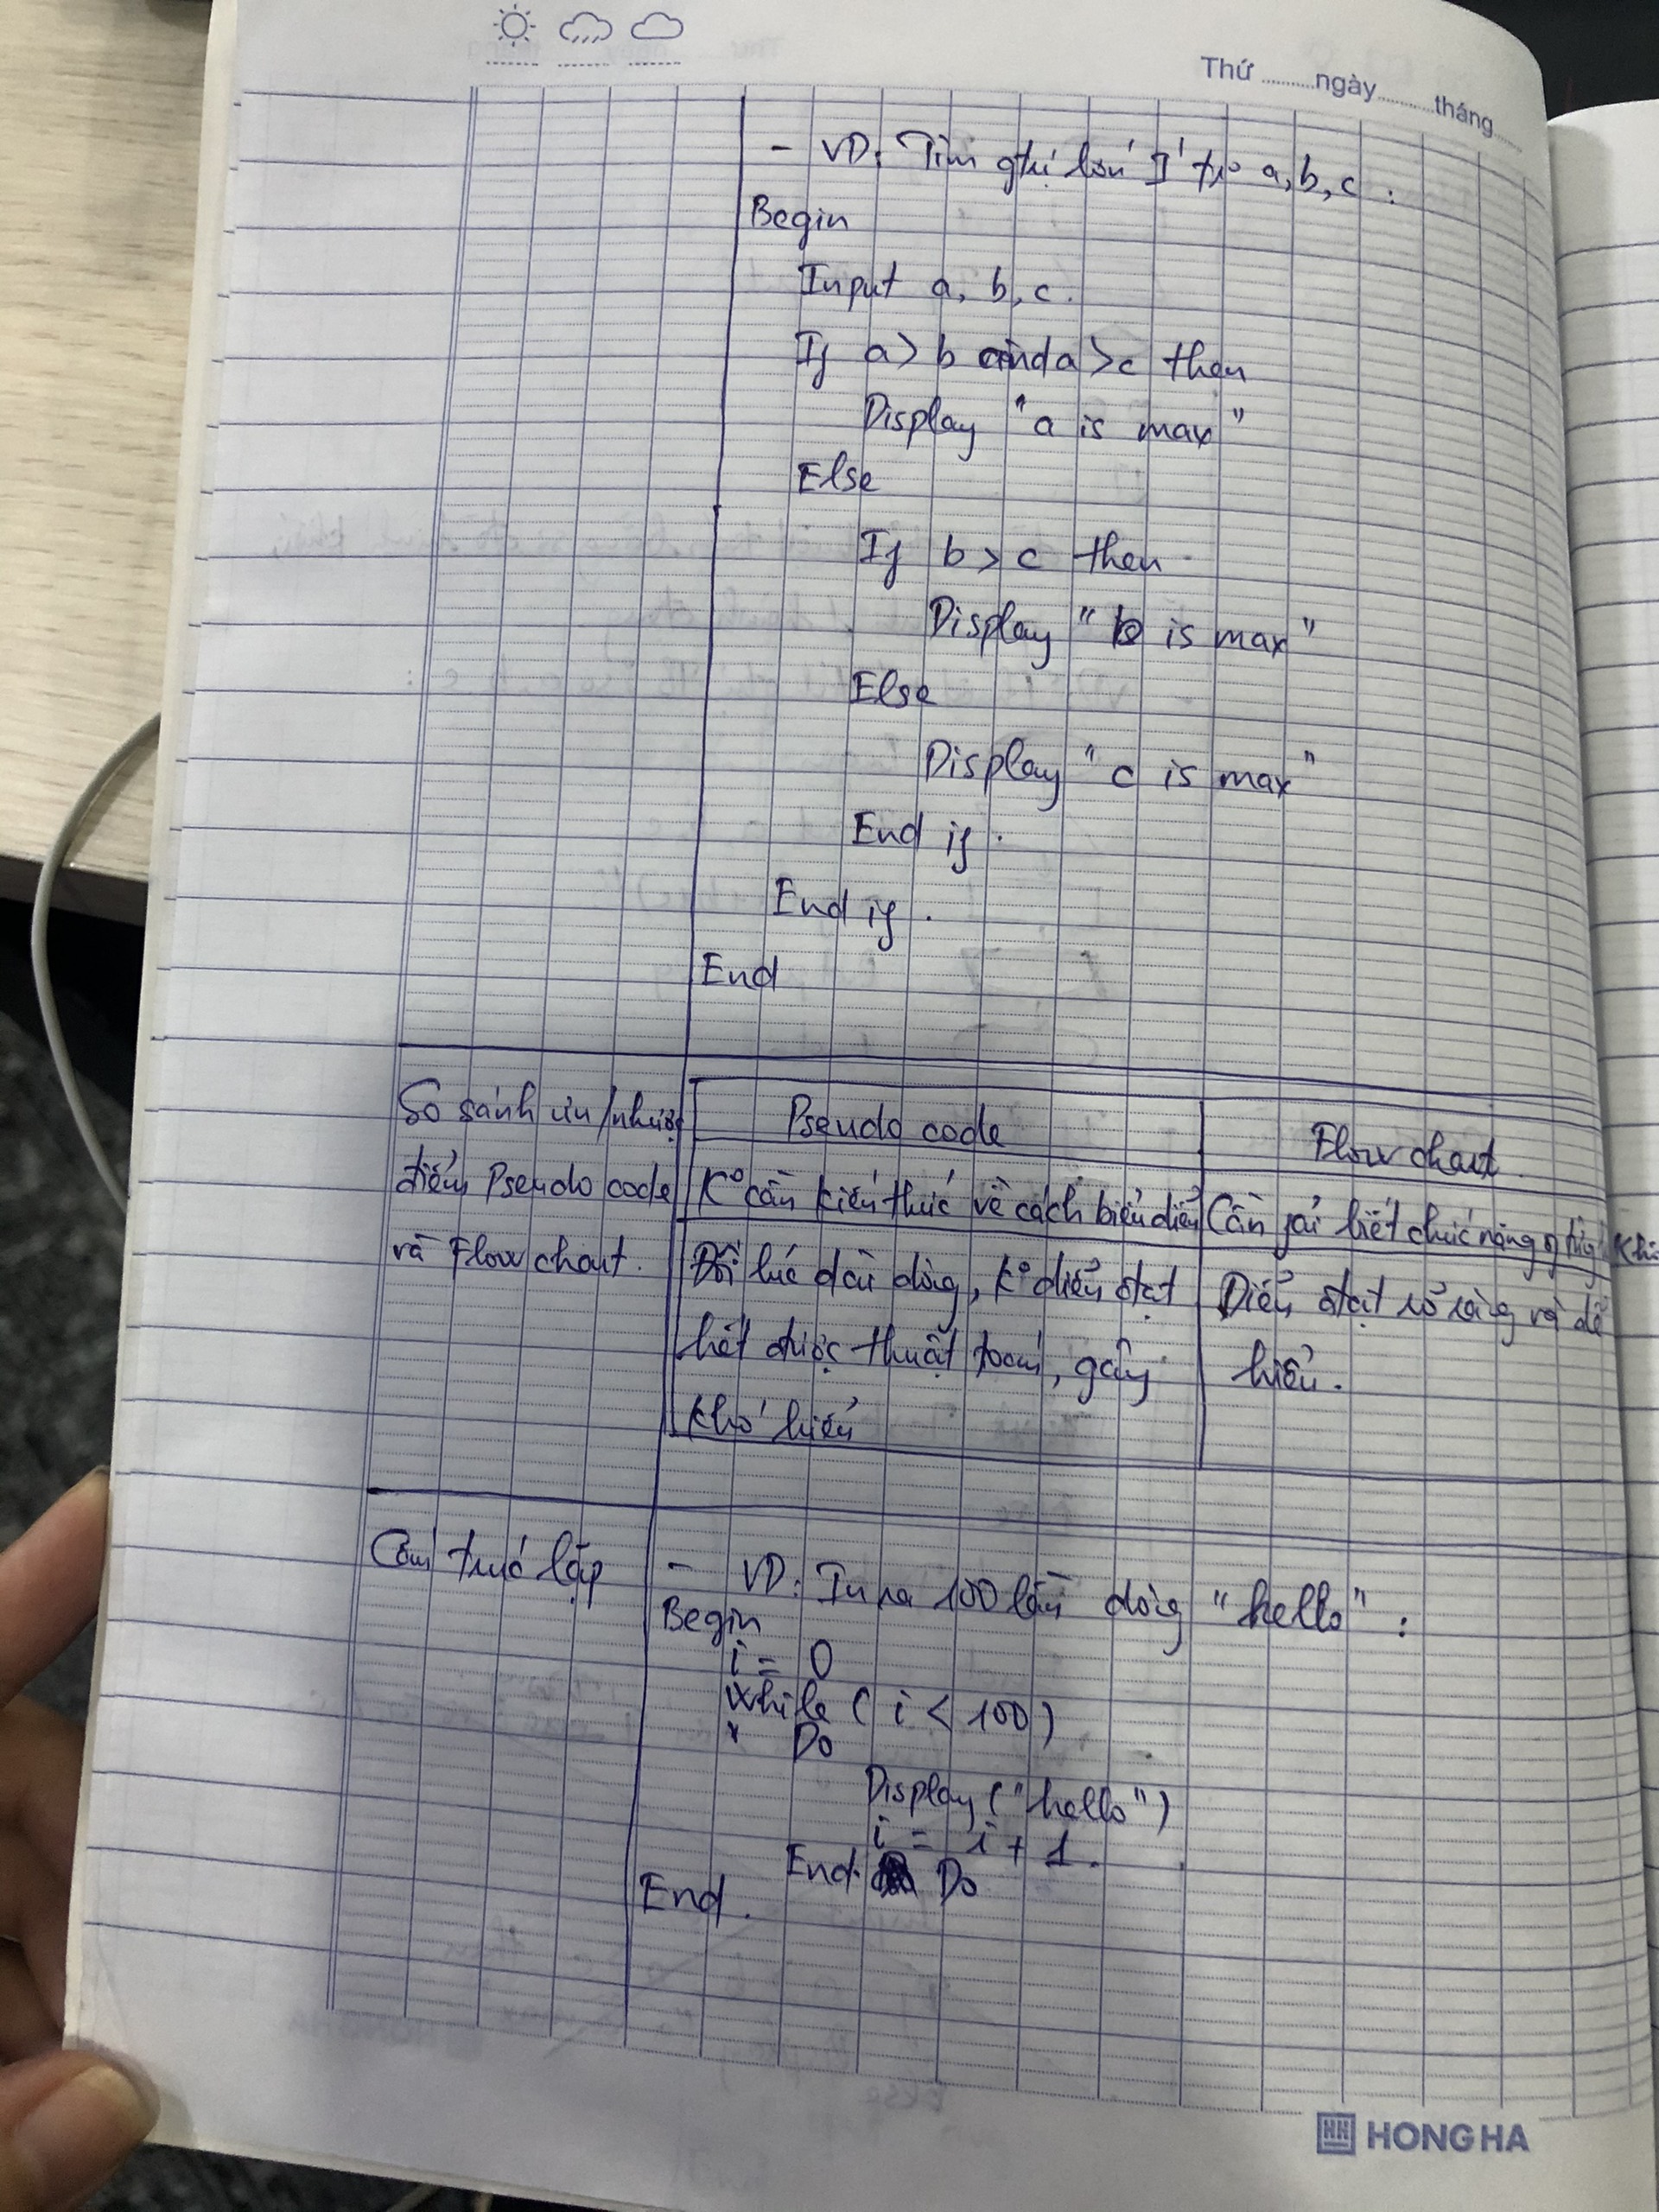 Thứ ........ngày..........tháng.....
- VD: Tìm gtrị lớn I từ a, b, c :
Begin
Input a, b, c.
If a > b and a > c then
Display "a is max"
Else
If b > c then
Display "b is max"
Else
Display "c is max"
End if.
End if.
End
So sánh ưu/nhược
điểm Pseudo code
và Flow chart.
Pseudo code
Flow chart
K° cần kiến thức về cách biểu diễn
Cần phải biết chức năng
Đôi lúc dài dòng, k° diễn đạt
hết được thuật toán, gây
khó hiểu
Diễn đạt rõ ràng và dễ
hiểu.
Cấu trúc lặp
- VD: In ra 100 lần dòng "hello" :
Begin
i = 0
While ( i < 100 )
Do
Display ("hello")
i = i + 1.
End Do
End.
HONG HA